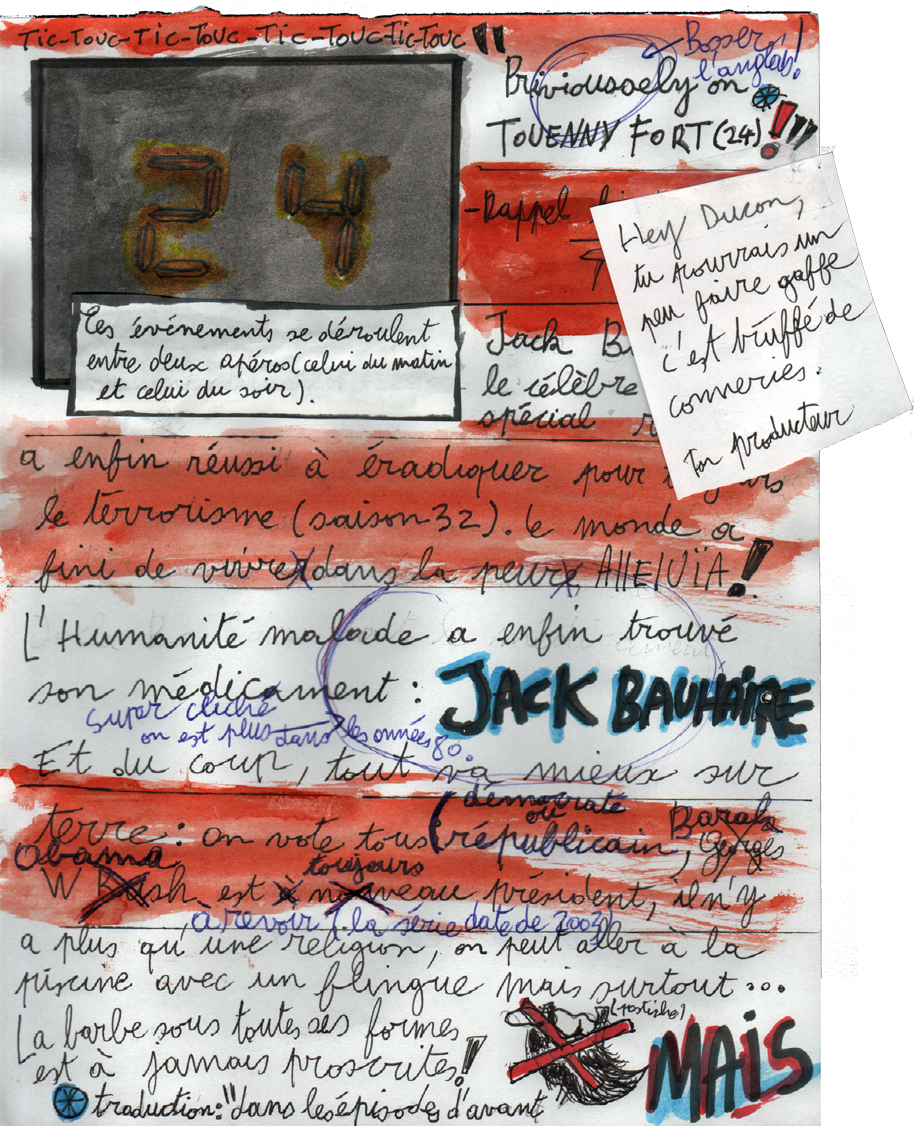 Tic-Touc-Tic-Touc-Tic-Touc-Tic-Touc
"Briviousoely on
TOUENNY FORT (24)!"
Bosser
l'anglab!
24
Les événements se déroulent
entre deux apéros (celui du matin
et celui du soir).
-Rappel
Hey Ducon,
tu pourrais un
peu faire gaffe
c'est truffé de
conneries.
Ton producteur
Jack B
le célèbre
spécial
a enfin réussi à éradiquer pour
le terrorisme (saison 32). Le monde a
fini de vivre dans la peur, AllELUÏA!
L'Humanité malade a enfin trouvé
son médicament : JACK BAUHAIRE
super cliché
on est plus dans les années 80.
Et du coup, tout va mieux sur
terre : on vote tous (démocrate
ou
républicain, Georges Barak
W Bush Obama est à nouveau toujours président, il n'y
à revoir! la série date de 2003
a plus qu'une religion, on peut aller à la
piscine avec un flingue mais surtout...
La barbe sous toutes ses formes
est à jamais proscrites!
(postiche)
MAIS
traduction: "dans les épisodes d'avant